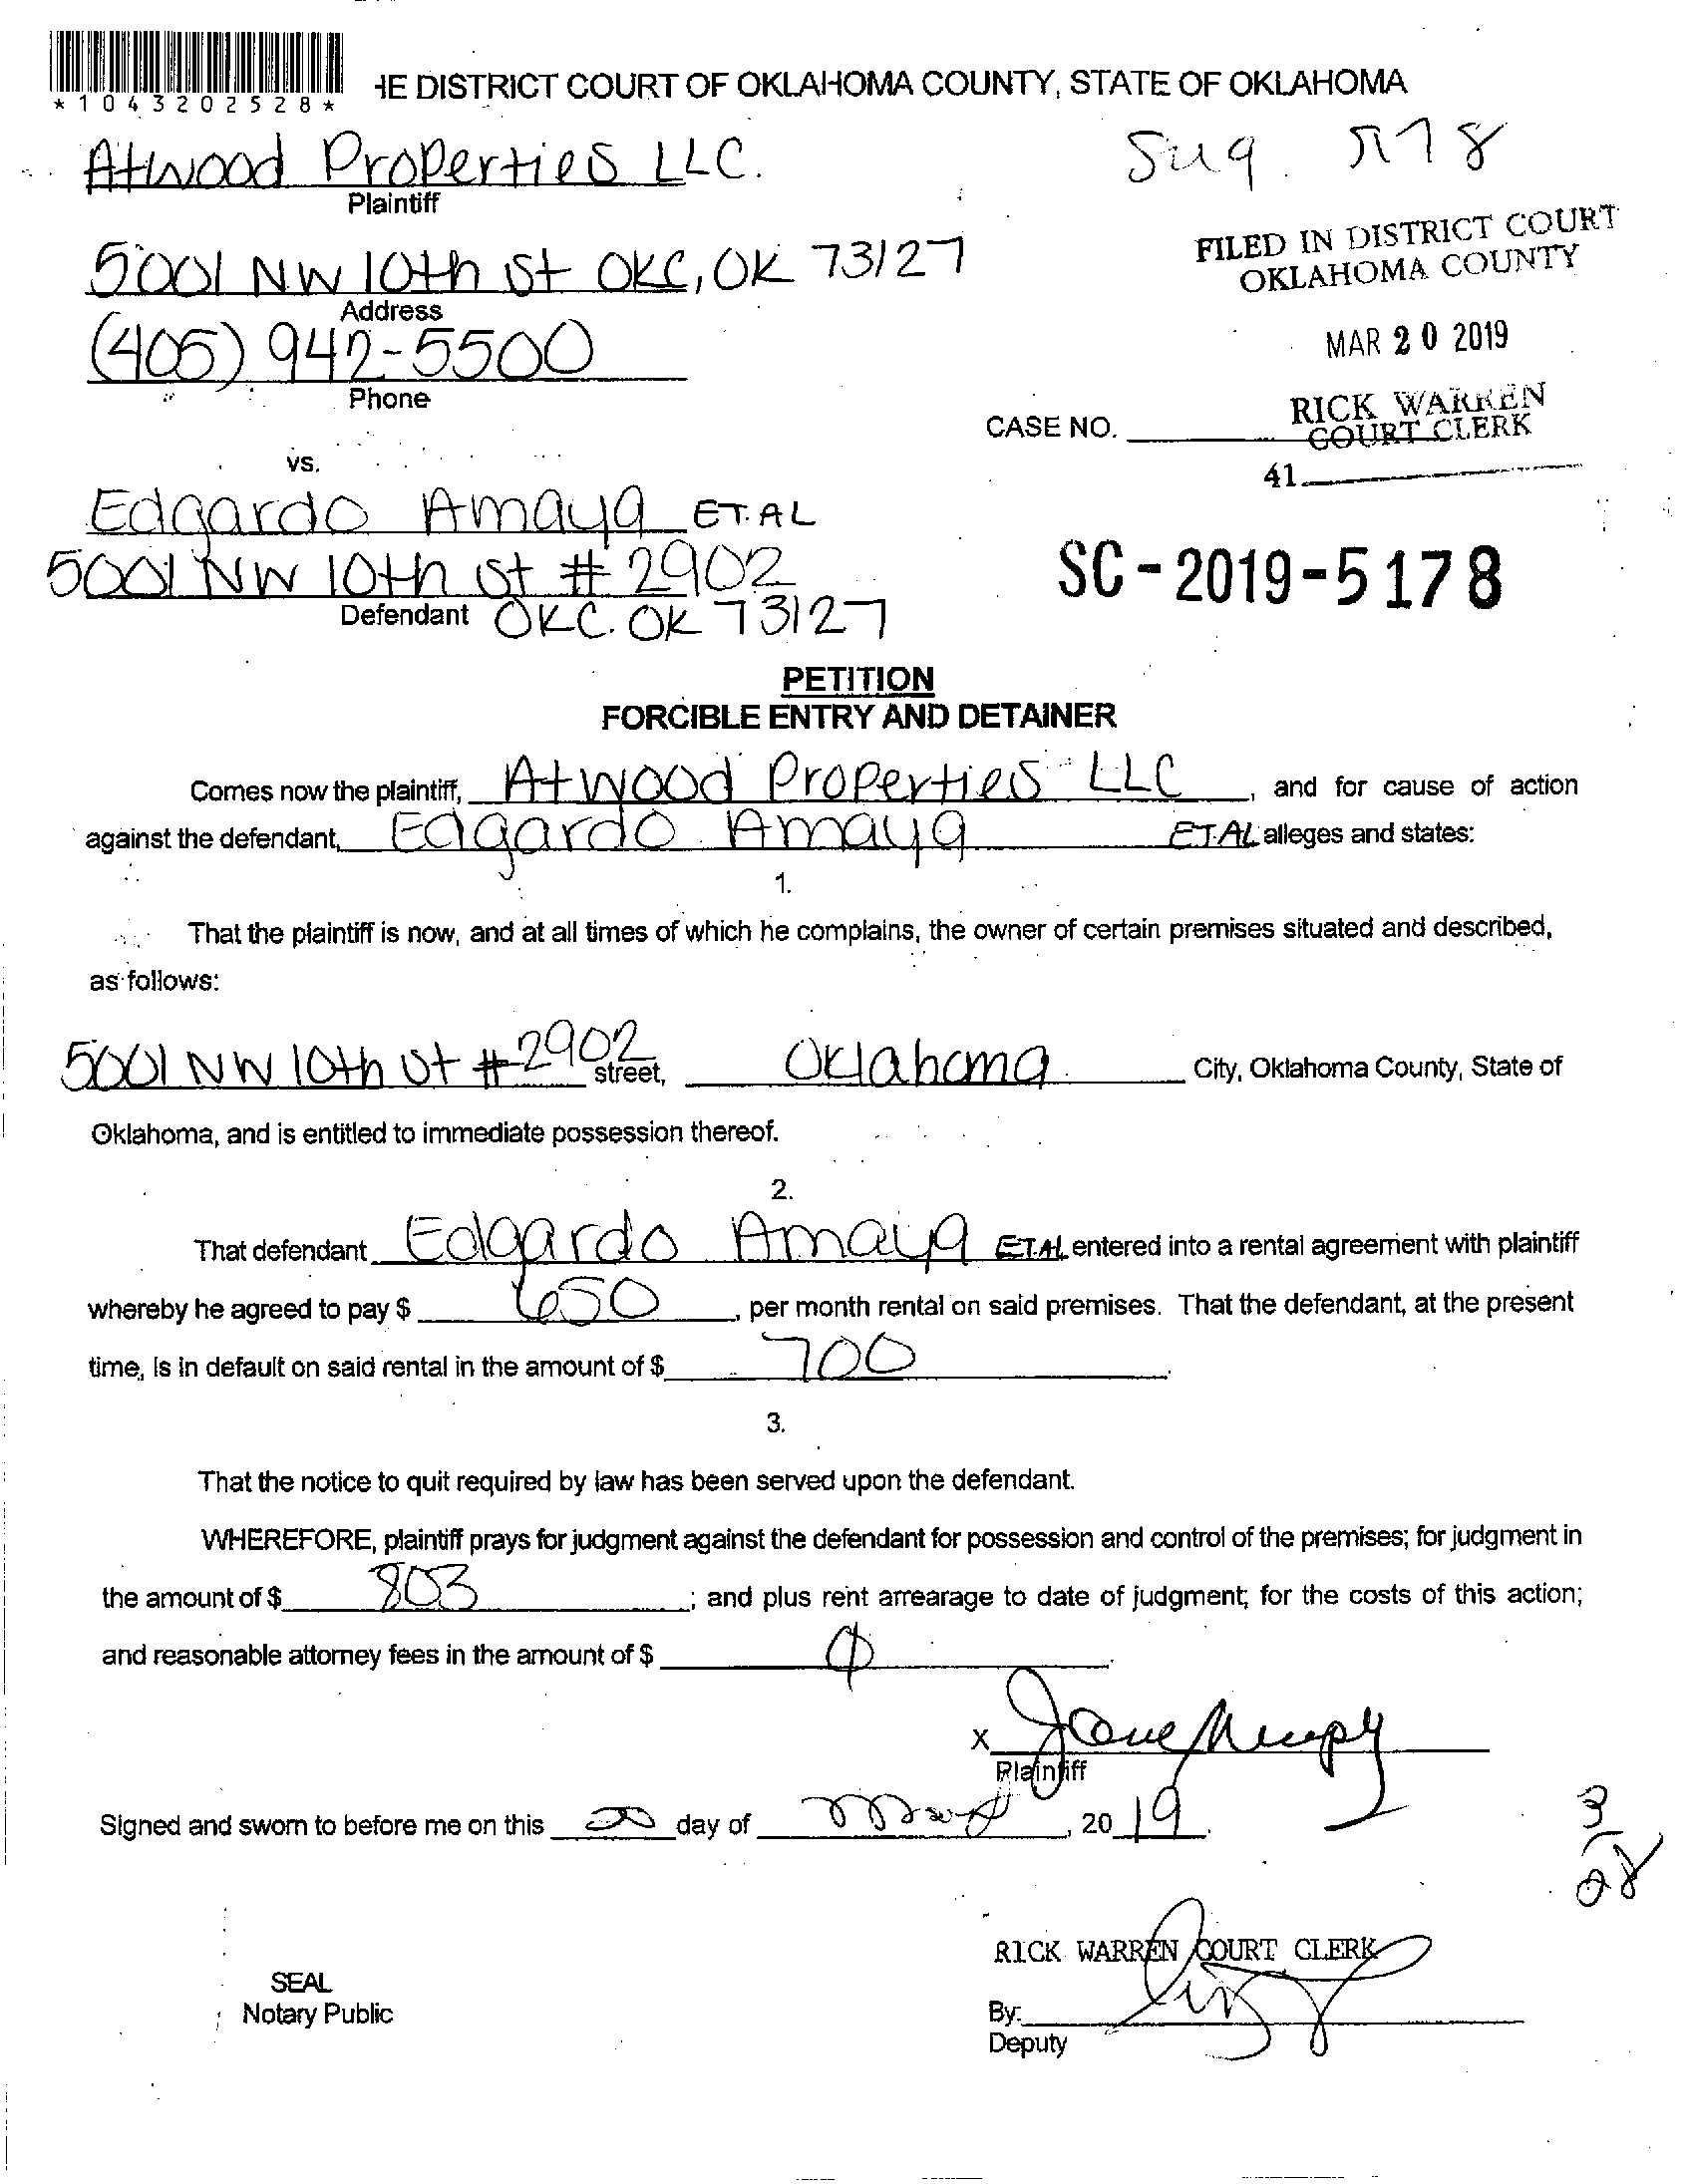 *1043202528*
HE DISTRICT COURT OF OKLAHOMA COUNTY, STATE OF OKLAHOMA
Atwood Properties LLC.
Plaintiff
5001 NW 10th St OKC, OK 73127
Address
(405) 942-5500
Phone
FILED IN DISTRICT COURT
OKLAHOMA COUNTY
MAR 20 2019
RICK WARREN
COURT CLERK
CASE NO.
41
vs.
Edgardo Amaya ET.AL
5001 NW 10th St # 2902
Defendant OKC. OK 73127
SC-2019-5178
PETITION
FORCIBLE ENTRY AND DETAINER
Comes now the plaintiff, Atwood Properties LLC, and for cause of action
against the defendant, Edgardo Amaya ET.AL alleges and states:
1.
That the plaintiff is now, and at all times of which he complains, the owner of certain premises situated and described,
as follows:
5001 NW 10th St #2902 street, Oklahoma City, Oklahoma County, State of
Oklahoma, and is entitled to immediate possession thereof.
2.
That defendant Edgardo Amaya ET.AL entered into a rental agreement with plaintiff
whereby he agreed to pay $ 650, per month rental on said premises. That the defendant, at the present
time, is in default on said rental in the amount of $ 700.
3.
That the notice to quit required by law has been served upon the defendant.
WHEREFORE, plaintiff prays for judgment against the defendant for possession and control of the premises; for judgment in
the amount of $ 803; and plus rent arrearage to date of judgment; for the costs of this action;
and reasonable attorney fees in the amount of $ 0.
X
Plaintiff
Signed and sworn to before me on this 20 day of March, 2019.
3/28
RICK WARREN COURT CLERK
SEAL
Notary Public
By:
Deputy